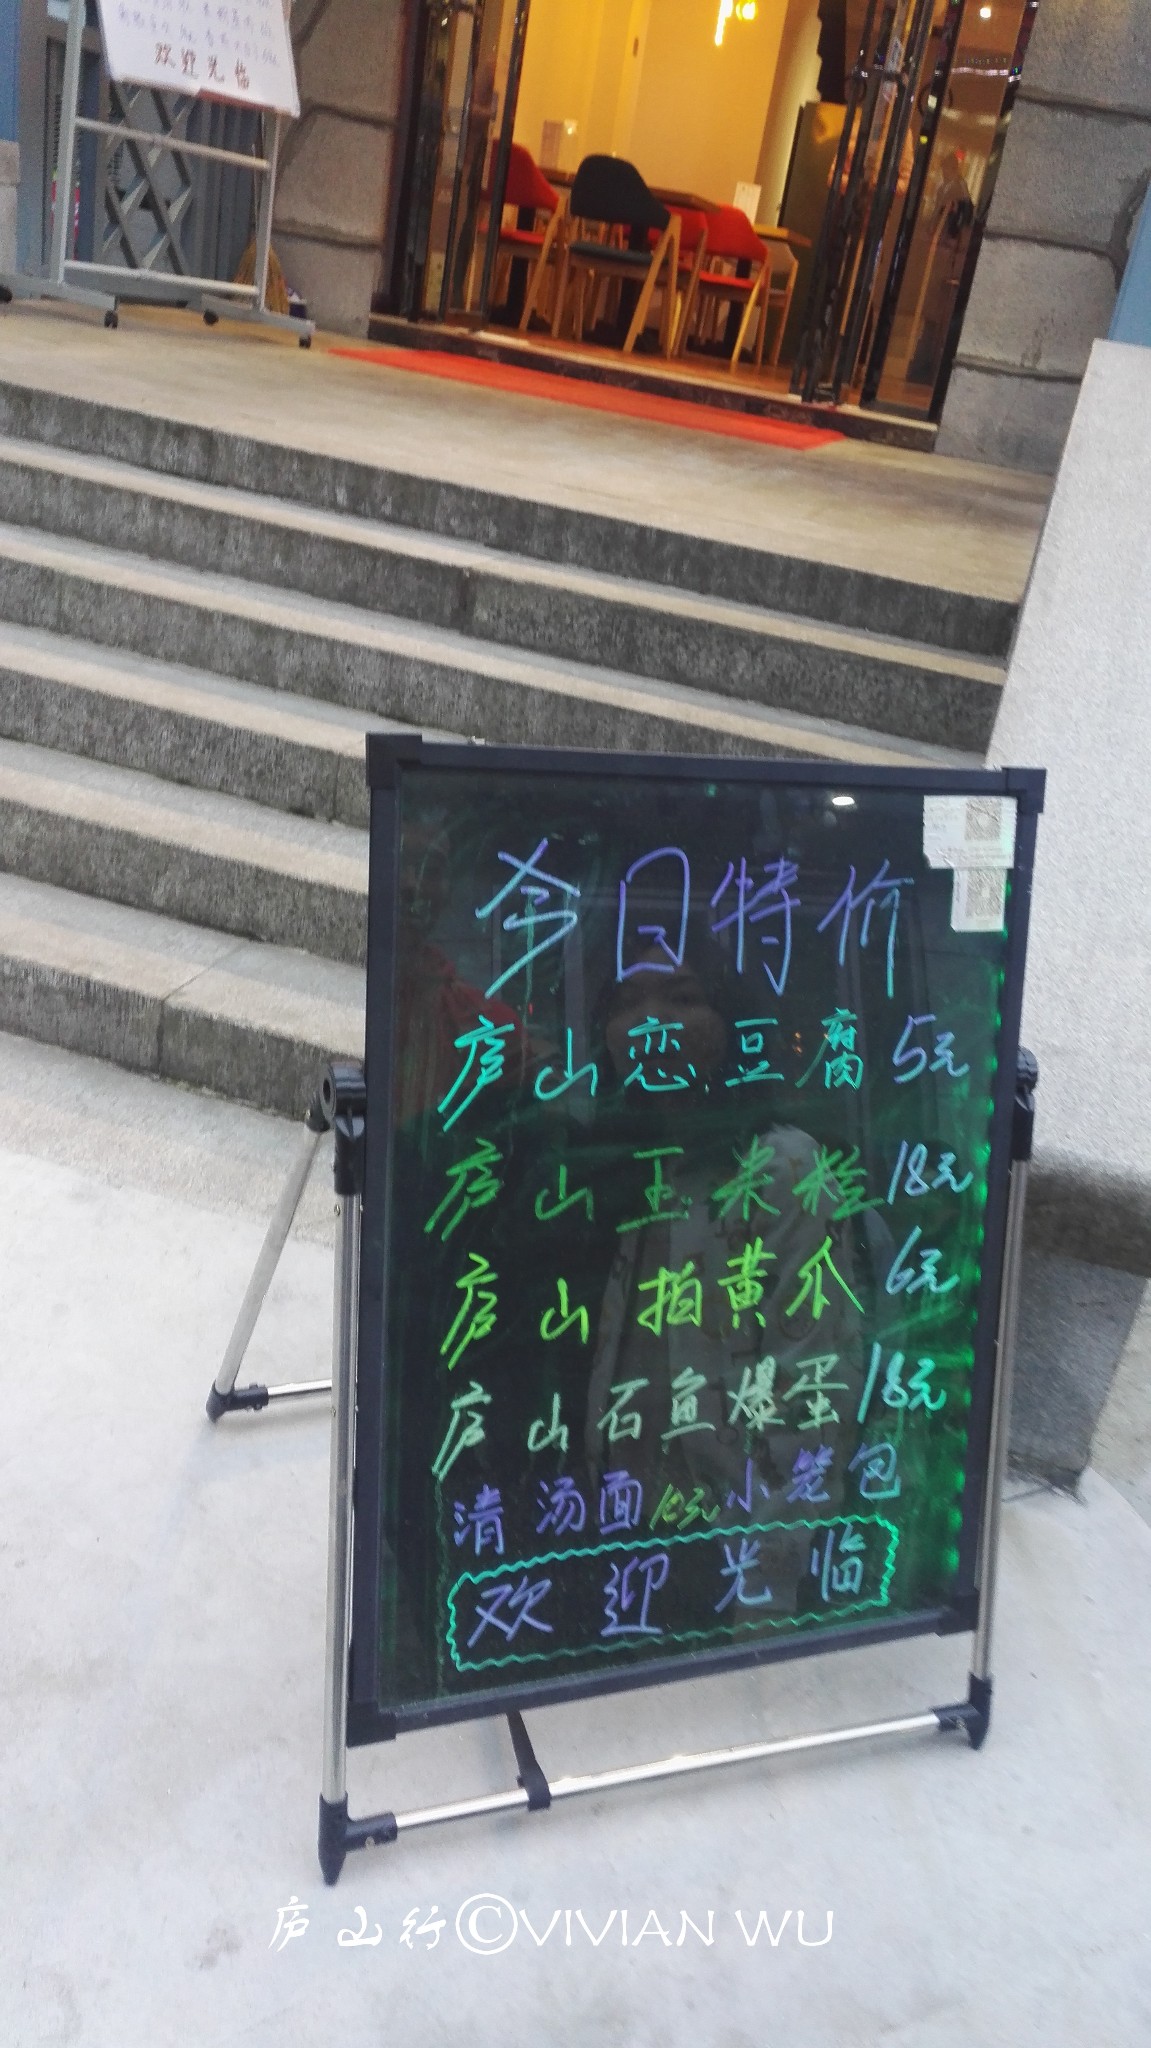 欢迎光临
今日特价
庐山恋豆腐 5元
庐山玉米粒 18元
庐山拍黄瓜 6元
庐山石鱼爆蛋 18元
清汤面10元小笼包
欢迎光临
庐山行©VIVIAN WU